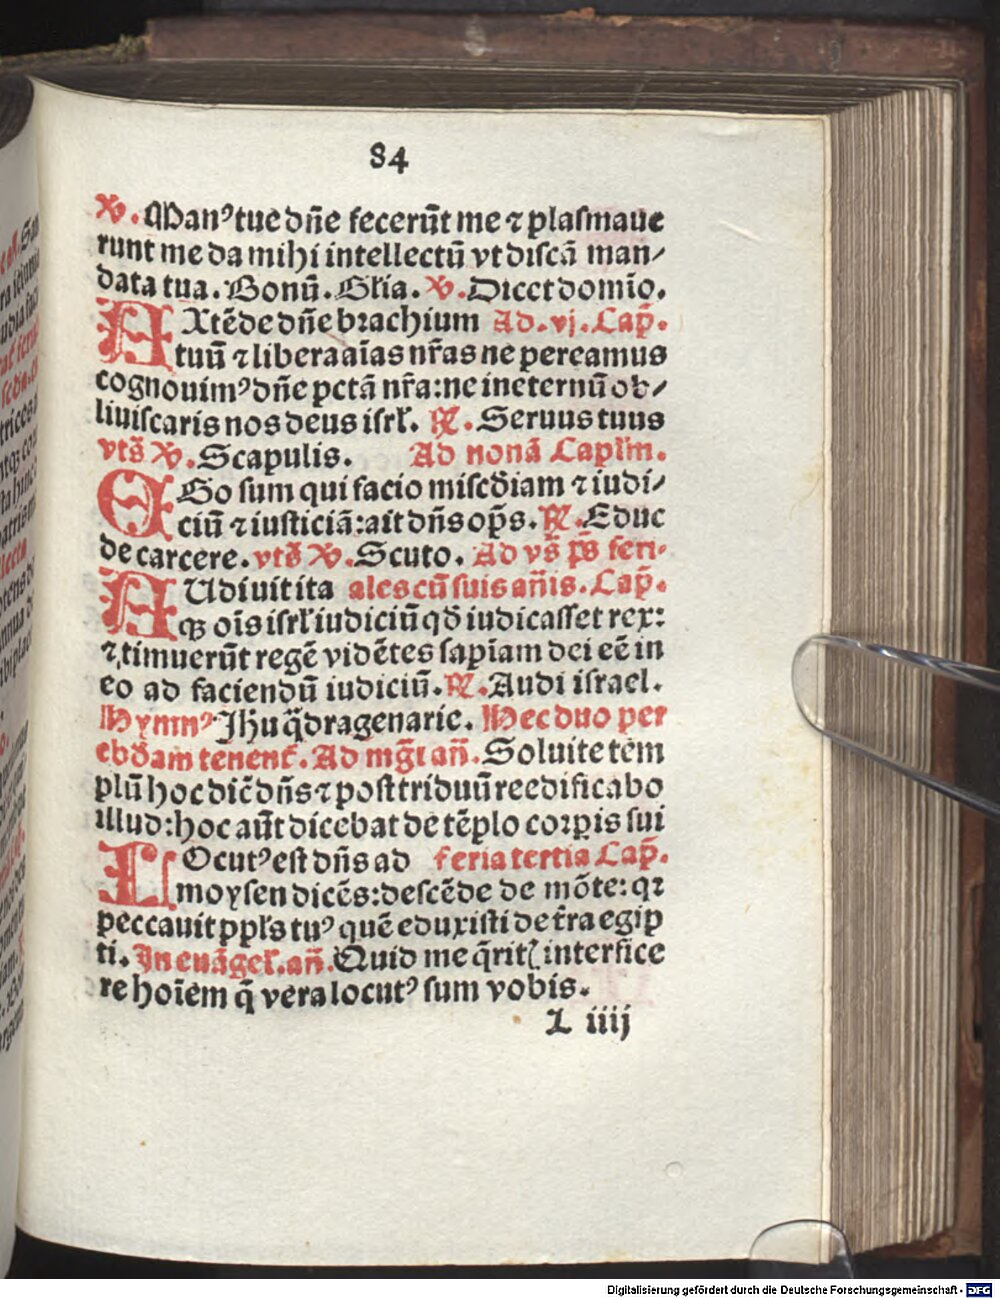 84
℣. Manꝰ tue dñe fecerūt me ⁊ plasmaue
runt me da mihi intellectū vt discā man⸗
data tua. Bonū. Glia. ℣. Dicet domīo.
EXtēde dñe brachium Ad. vj. Cap̄.
tuū ⁊ libera aīas nr̄as ne pereamus
cognouimꝰ dñe pctā nr̄a: ne ineternū ob⸗
liuiscaris nos deus isrl̄. ℟. Seruus tuus
vts̄ ℣. Scapulis. Ad nonā Capl̄m.
EGo sum qui facio miscd̄iam ⁊ iudi⸗
ciū ⁊ iusticiā: ait dñs op̄s. ℟. Educ
de carcere. vts̄ ℣. Scuto. Ad vs̄ ps̄ feri⸗
AUdiuit ita ales cū suis añis. Cap̄.
qꝫ oīs isrl̄ iudiciū qd̄ iudicasset rex:
⁊ timuerūt regē vidētes sapīam dei eē in
eo ad faciendū iudiciū. ℟. Audi israel.
Hymnꝰ Jhu q̄dragenarie. Hec duo per
ebd̄am tenent̄. Ad mgt̄ añ. Soluite tem
plū hoc dic̄ dñs ⁊ post triduū reedificabo
illud: hoc aūt dicebat de tēplo corꝑis sui
LOcutꝰ est dñs ad feria tertia Cap̄.
moysen dicēs: descēde de mōte: qꝛ
peccauit ppl̄s tuꝰ quē eduxisti de t̄ra egip
ti. Jn euāgel̄. añ. Quid me q̄rit̄ interfice
re hoīem q̄ vera locutꝰ sum vobis.
L iiij
Digitalisierung gefördert durch die Deutsche Forschungsgemeinschaft - DFG